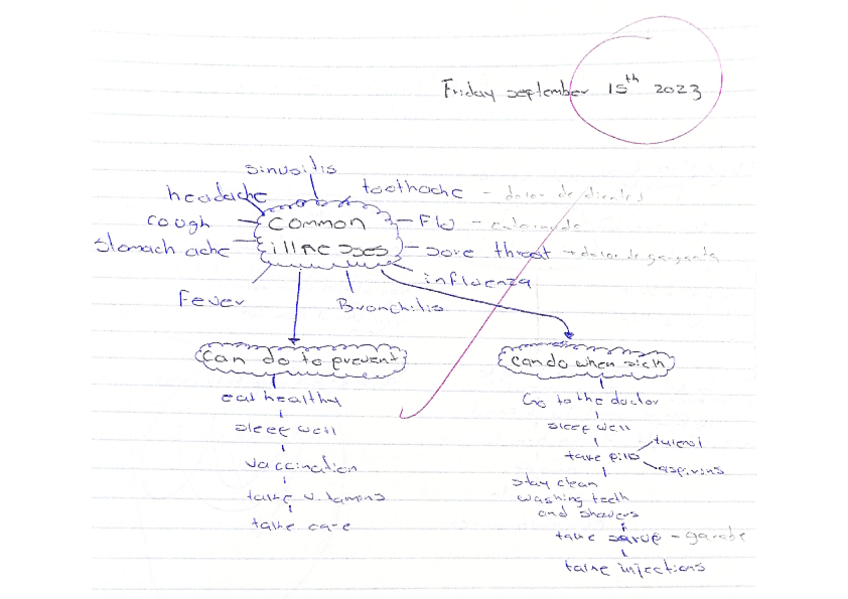 Friday september 15th 2023
sinusitis
headache
toothache - dolor de dientes
cough
common
Flu
stomach ache
illnesses
sore throat → dolor de garganta
influenza
Fever
Bronchitis
can do to prevent
can do when sick
eat healthy
Go to the doctor
sleep well
sleep well
tylenol
take pills
vaccination
aspirins
stay clean
take vitamins
washing teeth
and showers
take care
take - garabe
take injections